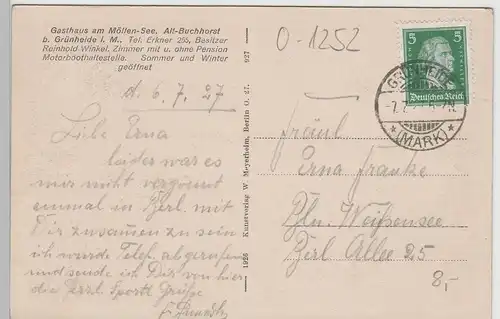 Gasthaus am Möllen-See. Alt-Buchhorst
b. Grünheide i. M., Tel. Erkner 255, Besitzer
Reinhold Winkel. Zimmer mit u. ohne Pension
Motorboothaltestelle. Sommer und Winter
geöffnet
d. 6. 7. 27
Liebe Erna
leider war es
mir nicht vergönnt
einmal in Berl. mit
Dir zusammen zu sein
ich wurde Telef. abgerufen
und sende ich Dir von hier
die herzl. Sport Grüße
1926 Kunstverlag W. Meyerheim, Berlin O. 27. 927
0-1252
5 5
Deutsches Reich
GRÜNHEIDE
-7.7.27
(MARK)
Fräul
Erna Franke
Bln. Weißensee
Berl Allee 25
8,-